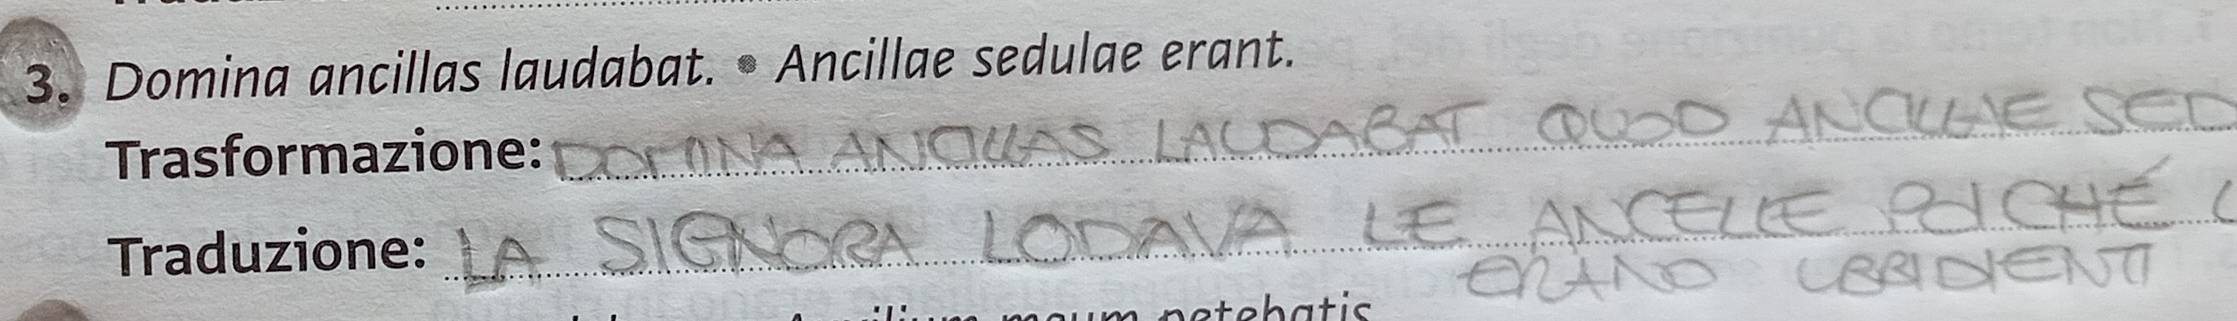 3. Domina ancillas laudabat. • Ancillae sedulae erant.
Trasformazione: DOMINA ANCILLAS LAUDABAT QUOD ANCILLAE SED
Traduzione: LA SIGNORA LODAVA LE ANCELLE POICHÉ
ERANO UBBIDIENTI
petebatis